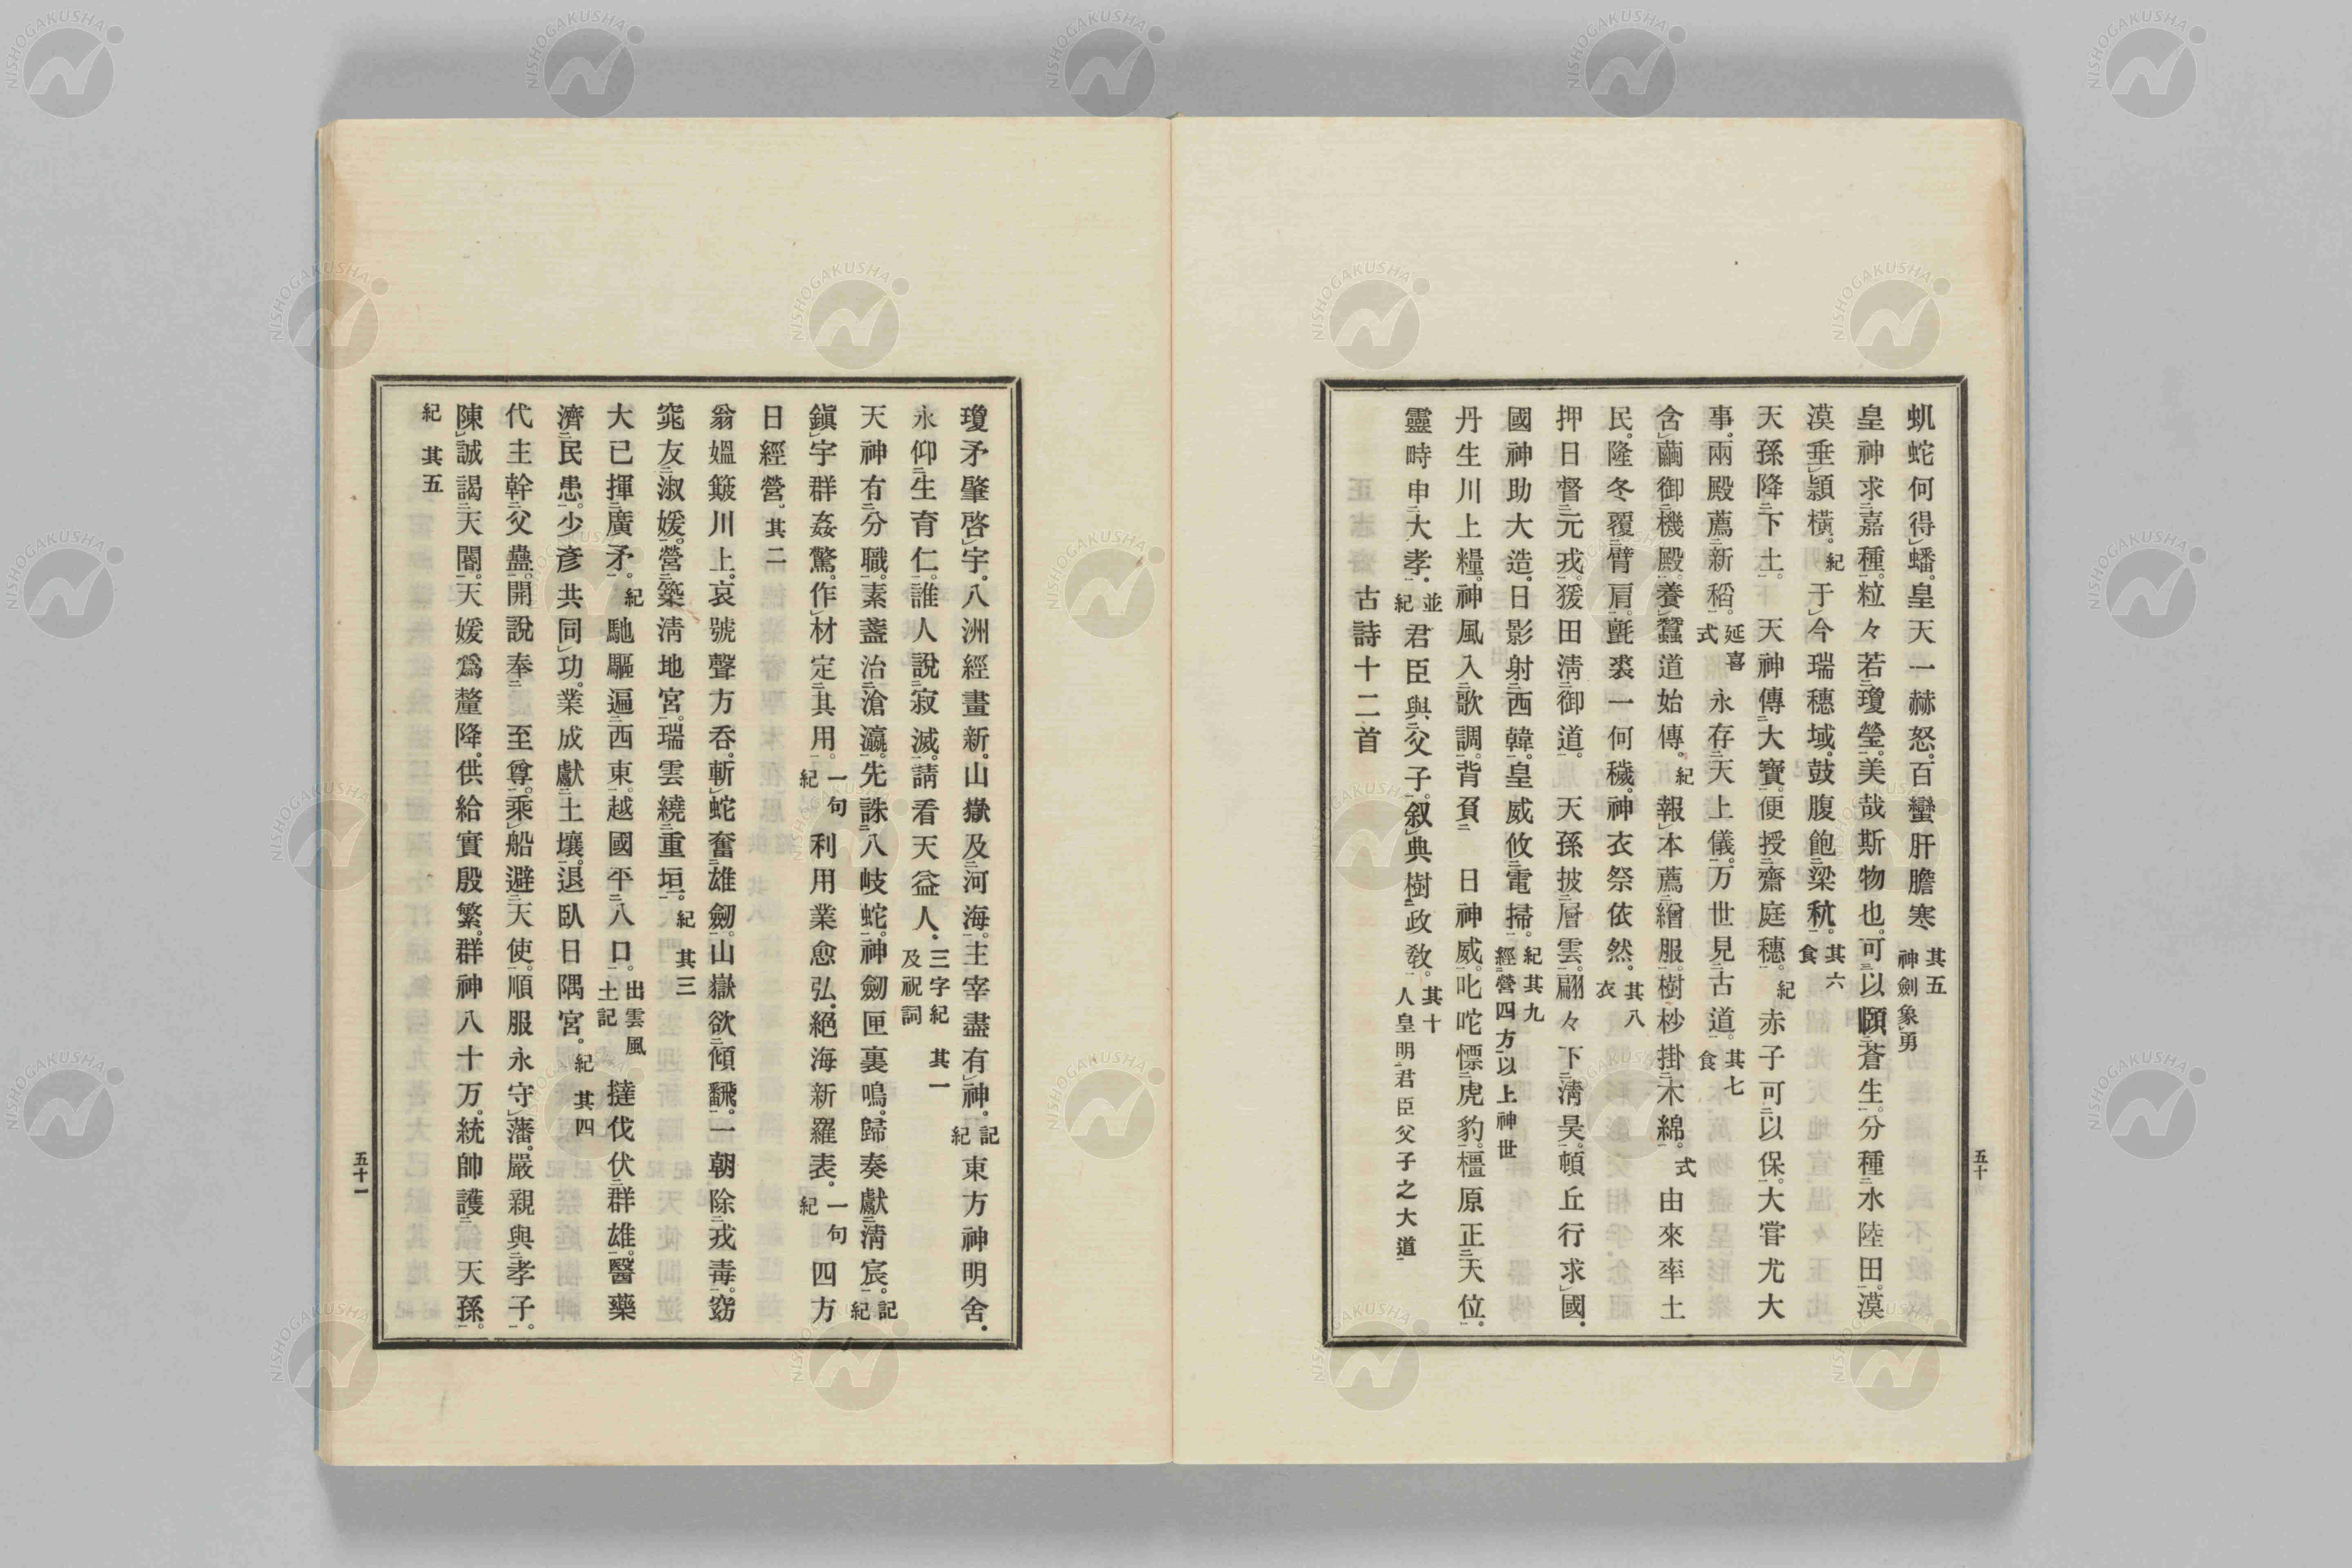 虬蛇何得蟠。皇天一赫怒。百蠻肝膽寒 其五 神劍象勇
皇神求嘉種。粒々若瓊瑩。美哉斯物也。可以頤蒼生。分種水陸田。漠
漠垂穎橫。紀 于今瑞穗域。鼓腹飽梁秔。其六 食
天孫降下土。天神傳大寶。便授齋庭穗。紀 赤子可以保。大甞尤大
事。兩殿薦新稻。延喜式 永存天上儀。万世見古道。其七 食
含繭御機殿。養蠶道始傳。紀 報本薦繒服。樹杪掛木綿。式 由來率土
民。隆冬覆臂肩。氈裘一何穢。神衣祭依然。其八 衣
押日督元戎。猨田淸御道。天孫披層雲。翩々下淸昊。頓丘行求國。
國神助大造。日影射西韓。皇威攸電掃。紀其九 經營四方以上神世
丹生川上糧。神風入歌調。背負日神威。叱咜慓虎豹。橿原正天位。
靈時申大孝。並紀 君臣與父子。叙典樹政敎。其十 人皇明君臣父子之大道
古詩十二首
五十
瓊矛肇啓宇。八洲經畫新。山嶽及河海。主宰盡有神。記紀 東方神明舍。
永仰生育仁。誰人說寂滅。請看天益人。三字紀及祝詞 其一
天神有分職。素盞治滄瀛。先誅八岐蛇。神劒匣裏鳴。歸奏獻淸宸。記紀
鎭宇群姦驚。作材定其用。一句紀 利用業愈弘。絕海新羅表。一句紀 四方
日經營。其二
翁媼簸川上。哀號聲方呑。斬蛇奮雄劒。山嶽欲傾飜。一朝除戎毒。窈
窕友淑媛。營築淸地宮。瑞雲繞重垣。紀 其三
大已揮廣矛。紀 馳驅遍西東。越國平八口。出雲風土記 撻伐伏群雄。醫藥
濟民患。少彥共同功。業成獻土壤。退臥日隅宮。紀 其四
代主幹父蠱。開說奉至尊。乘船避天使。順服永守藩。嚴親與孝子。
陳誠謁天閽。天媛爲釐降。供給實殷繁。群神八十万。統帥護天孫。
紀 其五
五十一
NISHOGAKUSHA